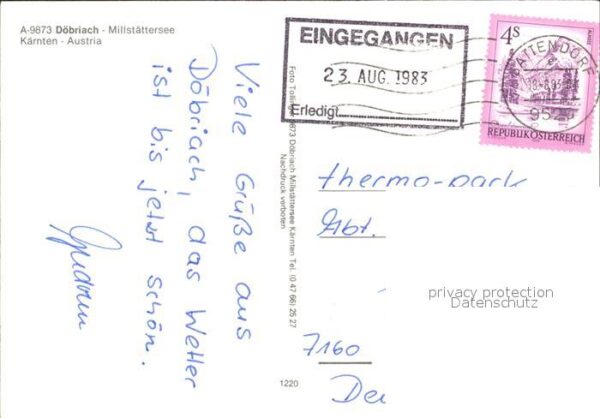 A-9873 Döbriach - Millstättersee
Kärnten - Austria
EINGEGANGEN
23. AUG. 1983
Erledigt
4S
REPUBLIK ÖSTERREICH
Viele Grüße aus
Döbriach, das Wetter
ist bis jetzt schön.
Gudrun
9873 Döbriach Millstättersee Kärnten Tel. (0 47 66) 25 27
Nachdruck verboten
thermo-park
Abt.
privacy protection
Datenschutz
7160
1220